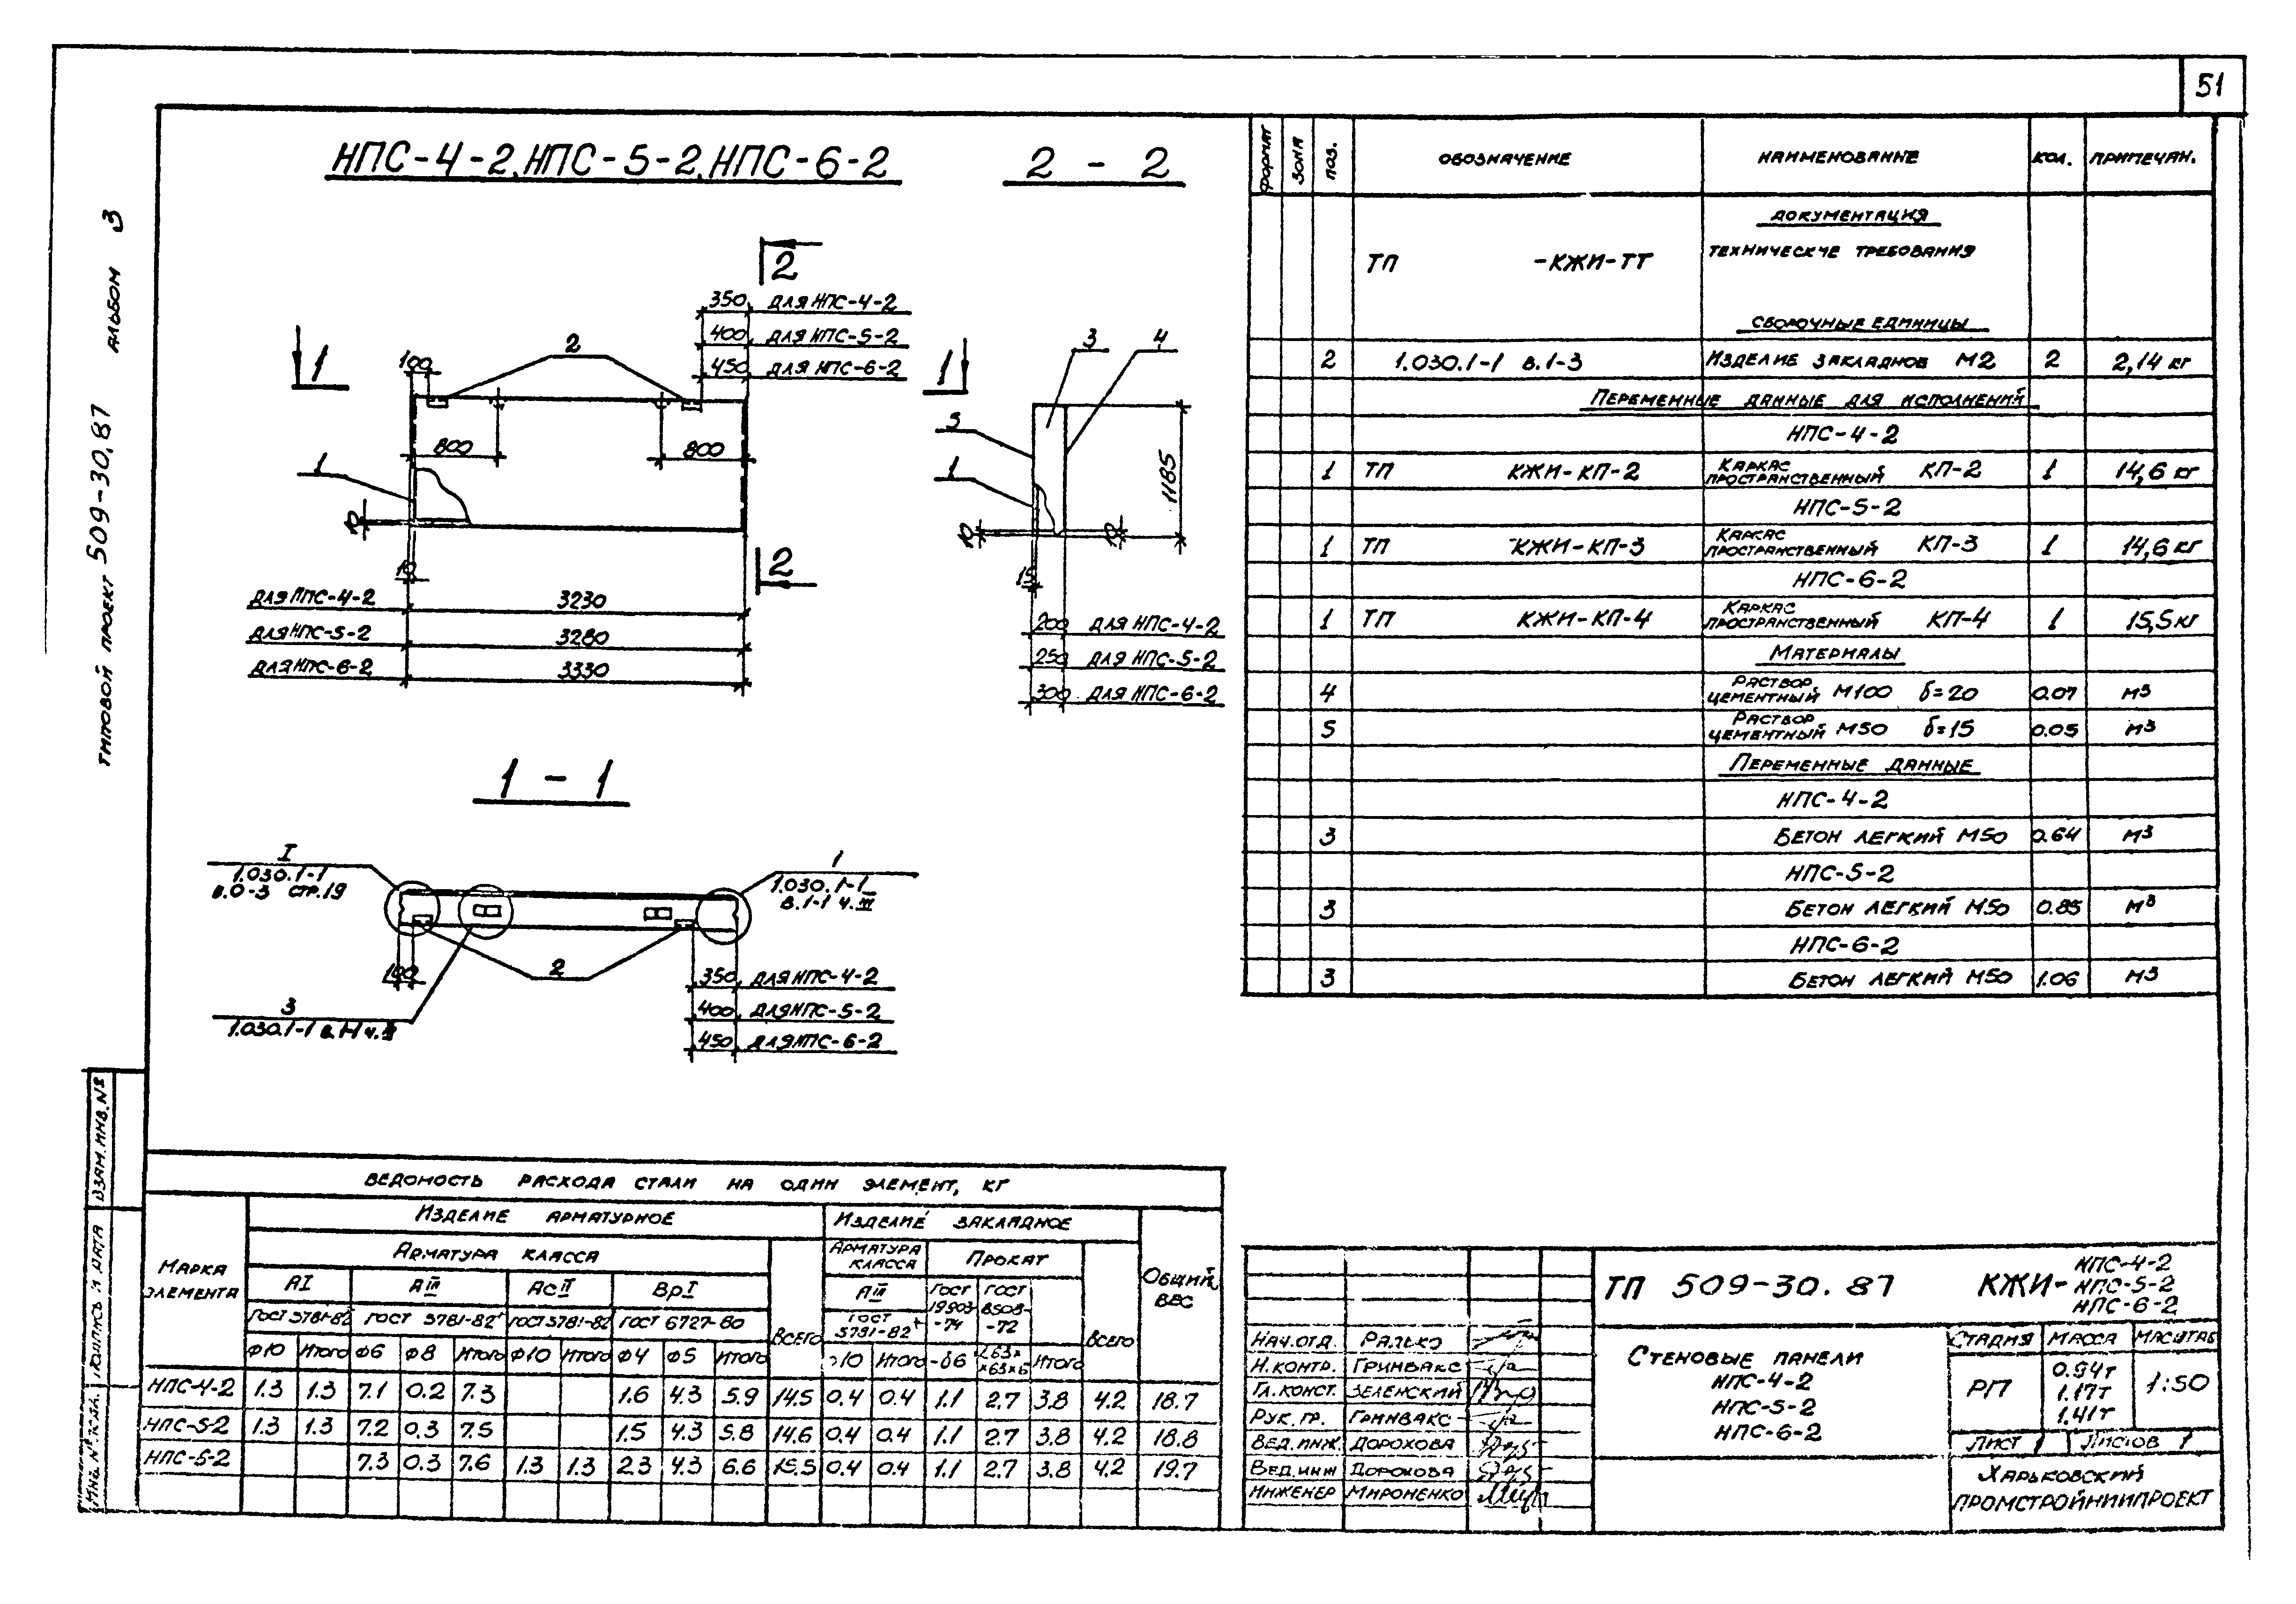 51
ТИПОВОЙ ПРОЕКТ 509-30.87 АЛЬБОМ 3
НПС-4-2, НПС-5-2, НПС-6-2
2 - 2
2
350 ДЛЯ НПС-4-2
400 ДЛЯ НПС-5-2
450 ДЛЯ НПС-6-2
1
100
2
800
800
1
10
2
ДЛЯ НПС-4-2 3230
ДЛЯ НПС-5-2 3280
ДЛЯ НПС-6-2 3330
1
3
4
5
1
1185
15
200 ДЛЯ НПС-4-2
250 ДЛЯ НПС-5-2
300 ДЛЯ НПС-6-2
1 - 1
I
1.030.1-1
В.0-3 СТР.19
1
1.030.1-1
В.1-1 Ч.III
100
2
350 ДЛЯ НПС-4-2
400 ДЛЯ НПС-5-2
450 ДЛЯ НПС-6-2
3
1.030.1-1
ФОРМАТ ЗОНА ПОЗ. ОБОЗНАЧЕНИЕ НАИМЕНОВАНИЕ КОЛ. ПРИМЕЧАН.
ДОКУМЕНТАЦИЯ
ТП -КЖИ-ТТ ТЕХНИЧЕСКИЕ ТРЕБОВАНИЯ
СБОРОЧНЫЕ ЕДИНИЦЫ
2 1.030.1-1 В.1-3 ИЗДЕЛИЕ ЗАКЛАДНОЕ М2 2 2,14 кг
ПЕРЕМЕННЫЕ ДАННЫЕ ДЛЯ ИСПОЛНЕНИЙ
НПС-4-2
1 ТП КЖИ-КП-2 КАРКАС ПРОСТРАНСТВЕННЫЙ КП-2 1 14,6 кг
НПС-5-2
1 ТП -КЖИ-КП-3 КАРКАС ПРОСТРАНСТВЕННЫЙ КП-3 1 14,6 кг
НПС-6-2
1 ТП КЖИ-КП-4 КАРКАС ПРОСТРАНСТВЕННЫЙ КП-4 1 15,5 кг
МАТЕРИАЛЫ
4 РАСТВОР ЦЕМЕНТНЫЙ М100 δ=20 0.07 м3
5 РАСТВОР ЦЕМЕНТНЫЙ М50 δ=15 0.05 м3
ПЕРЕМЕННЫЕ ДАННЫЕ
НПС-4-2
3 БЕТОН ЛЕГКИЙ М50 0.64 м3
НПС-5-2
3 БЕТОН ЛЕГКИЙ М50 0.85 м3
НПС-6-2
3 БЕТОН ЛЕГКИЙ М50 1.06 м3
ВЕДОМОСТЬ РАСХОДА СТАЛИ НА ОДИН ЭЛЕМЕНТ, КГ
МАРКА ЭЛЕМЕНТА ИЗДЕЛИЕ АРМАТУРНОЕ ИЗДЕЛИЕ ЗАКЛАДНОЕ ОБЩИЙ ВЕС
АРМАТУРА КЛАССА ВСЕГО АРМАТУРА КЛАССА ПРОКАТ ВСЕГО
АI АIII АсII ВрI АIII ГОСТ 19903-74 ГОСТ 8508-72
ГОСТ 5781-82 ГОСТ 5781-82 ГОСТ 5781-82 ГОСТ 6727-80 ГОСТ 5781-82
Ф10 ИТОГО Ф6 Ф8 ИТОГО Ф10 ИТОГО Ф4 Ф5 ИТОГО Ф10 ИТОГО -δ6 L63××63×6 ИТОГО
НПС-4-2 1.3 1.3 7.1 0.2 7.3 1.6 4.3 5.9 14.5 0.4 0.4 1.1 2.7 3.8 4.2 18.7
НПС-5-2 1.3 1.3 7.2 0.3 7.5 1.5 4.3 5.8 14.6 0.4 0.4 1.1 2.7 3.8 4.2 18.8
НПС-6-2 7.3 0.3 7.6 1.3 1.3 2.3 4.3 6.6 15.5 0.4 0.4 1.1 2.7 3.8 4.2 19.7
НАЧ.ОТД. РАДЬКО
Н.КОНТР. ГРИНВАКС
ГЛ.КОНСТ. ЗЕЛЕНСКИЙ
РУК.ГР. ГРИНВАКС
ВЕД.ИНЖ ДОРОХОВА
ВЕД.ИНЖ ДОРОХОВА
ИНЖЕНЕР МИРОНЕНКО
ТП 509-30.87 КЖИ- НПС-4-2
НПС-5-2
НПС-6-2
СТЕНОВЫЕ ПАНЕЛИ
НПС-4-2
НПС-5-2
НПС-6-2
СТАДИЯ МАССА МАСШТАБ
РП 0.94т 1:50
1.17т
1.41т
ЛИСТ 1 ЛИСТОВ 1
ХАРЬКОВСКИЙ
ПРОМСТРОЙНИИПРОЕКТ
ВЗАМ.ИНВ.№
ПОДПИСЬ И ДАТА
ИНВ.№ ПОДЛ.